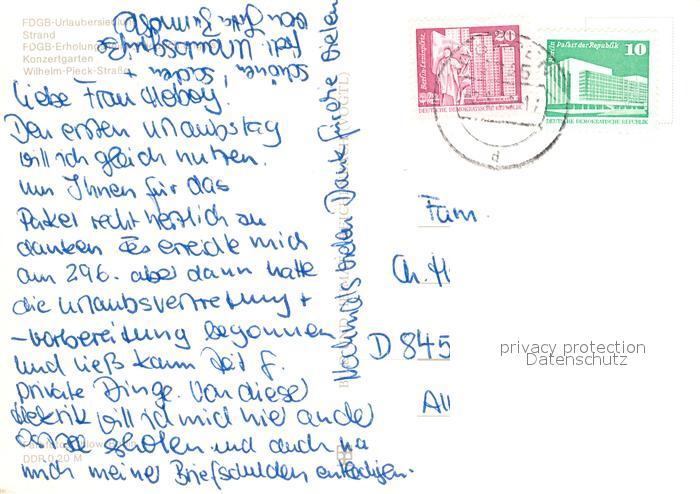 FDGB-Urlaubersiedlu
Strand
FDGB-Erholung
Konzertgarten
Wilhelm-Pieck-Straße
Liebe Frau
Den ersten Urlaubstag
will ich gleich nutzen,
um Ihnen für das
Paket recht herzlich zu
danken. Es erreichte mich
am 29.6. aber dann hatte
die Urlaubsvertretung +
-vorbereitung begonnen
und ließ kaum Zeit f.
private Dinge. Von dieser
Hektik will ich mich hier an der
Ostsee erholen und auch
mich meiner Briefschulden entledigen.
Nochmals vielen Dank für die vielen
schönen, +
DDR 0,20 M
Berlin-Leninplatz
20
DEUTSCHE DEMOKRATISCHE REPUBLIK
Berlin Palast der Republik
10
DEUTSCHE DEMOKRATISCHE REPUBLIK
Fam.
Ch. H
D 845
privacy protection
Datenschutz